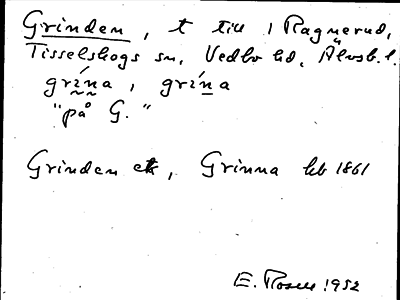 Grinden, t till 1 Ragnerud,
Tisselskogs sn, Vedbo hd, Älvsb. l.
grína, grína
"på G."
Grinden ek, Grinna hb 1861
E. Rosell 1952